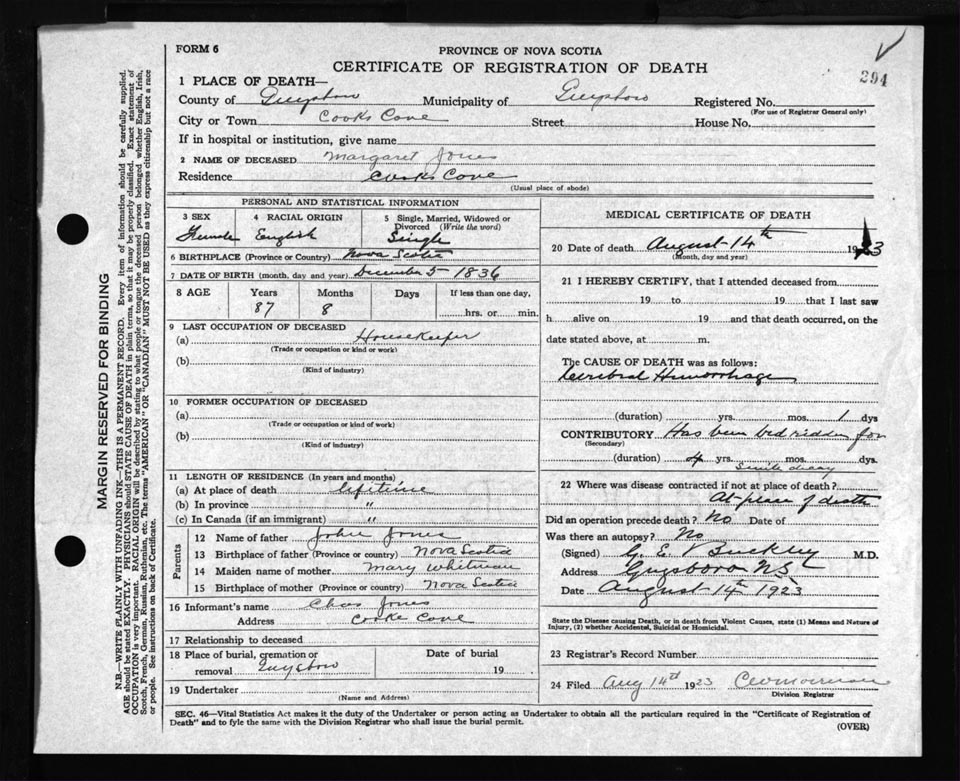 FORM 6
PROVINCE OF NOVA SCOTIA
CERTIFICATE OF REGISTRATION OF DEATH
294
1 PLACE OF DEATH—
County of Guysboro Municipality of Guysboro Registered No.
(For use of Registrar General only)
City or Town Cooks Cove Street House No.
If in hospital or institution, give name
2 NAME OF DECEASED Margaret Jones
Residence Cooks Cove
(Usual place of abode)
PERSONAL AND STATISTICAL INFORMATION
3 SEX
Female
4 RACIAL ORIGIN
English
5 Single, Married, Widowed or Divorced (Write the word)
Single
6 BIRTHPLACE (Province or Country) Nova Scotia
7 DATE OF BIRTH (month, day and year) December 5 1836
8 AGE Years Months Days If less than one day,
87 8 hrs. or min.
9 LAST OCCUPATION OF DECEASED
(a) Housekeeper
(Trade or occupation or kind or work)
(b)
(Kind of industry)
10 FORMER OCCUPATION OF DECEASED
(a)
(Trade or occupation or kind of work)
(b)
(Kind of industry)
11 LENGTH OF RESIDENCE (In years and months)
(a) At place of death lifetime
(b) In province "
(c) In Canada (if an immigrant) "
Parents
12 Name of father John Jones
13 Birthplace of father (Province or country) Nova Scotia
14 Maiden name of mother Mary Whitman
15 Birthplace of mother (Province or country) Nova Scotia
16 Informant's name Chas Jones
Address Cooks Cove
17 Relationship to deceased
18 Place of burial, cremation or removal Guysboro
Date of burial 19
19 Undertaker
(Name and Address)
MEDICAL CERTIFICATE OF DEATH
20 Date of death August 14th 1923
(Month, day and year)
21 I HEREBY CERTIFY, that I attended deceased from
19 to 19 that I last saw
h alive on 19 and that death occurred, on the
date stated above, at m.
The CAUSE OF DEATH was as follows:
Cerebral Hemorrhage
(duration) yrs. mos. 1 dys
CONTRIBUTORY Has been bedridden for
(Secondary)
(duration) 4 yrs. mos. dys.
Senile decay
22 Where was disease contracted if not at place of death?
At place of death
Did an operation precede death? No Date of
Was there an autopsy? No
(Signed) G. E. Buckley M.D.
Address Guysboro N S
Date August 14th 1923
State the Disease Causing Death, or in death from Violent Causes, state (1) Means and Nature of Injury, (2) whether Accidental, Suicidal or Homicidal.
23 Registrar's Record Number
24 Filed Aug 14th 1923
Division Registrar
SEC. 46—Vital Statistics Act makes it the duty of the Undertaker or person acting as Undertaker to obtain all the particulars required in the "Certificate of Registration of
Death" and to fyle the same with the Division Registrar who shall issue the burial permit.
(OVER)
MARGIN RESERVED FOR BINDING
N.B.—WRITE PLAINLY, WITH UNFADING INK—THIS IS A PERMANENT RECORD. Every item of information should be carefully supplied.
AGE should be stated EXACTLY. PHYSICIANS should STATE CAUSE OF DEATH in plain terms, so that it may be properly classified. Exact statement of
OCCUPATION is very important. RACIAL ORIGIN will be described by stating to what people or tongue the deceased person belonged whether English, Irish,
Scotch, French, German, Russian, Ruthenian, etc. The terms "AMERICAN" OR "CANADIAN" MUST NOT BE USED as they express citizenship but not a race
or people. See instructions on back of Certificate.